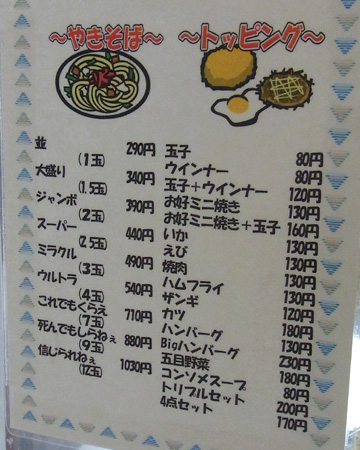 ～やきそば～
～トッピング～
並 (1玉) 290円
大盛り (1.5玉) 340円
ジャンボ (2玉) 390円
スーパー (2.5玉) 440円
ミラクル (3玉) 490円
ウルトラ (4玉) 540円
これでもくらえ (7玉) 710円
死んでもしらねぇ (9玉) 880円
信じられねぇ (12玉) 1030円
玉子 80円
ウインナー 80円
玉子+ウインナー 120円
お好ミニ焼き 130円
お好ミニ焼き+玉子 160円
いか 130円
えび 130円
焼肉 130円
ハムフライ 130円
ザンギ 120円
カツ 180円
ハンバーグ 130円
Bigハンバーグ 230円
五目野菜 180円
コンソメスープ 80円
トリプルセット 200円
4点セット 170円